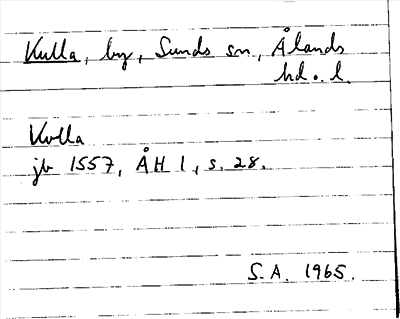 Kulla, by, Sunds sn, Ålands
hd o. l.
Kulla
jb 1557, ÅH 1, s. 28.
S.A. 1965.